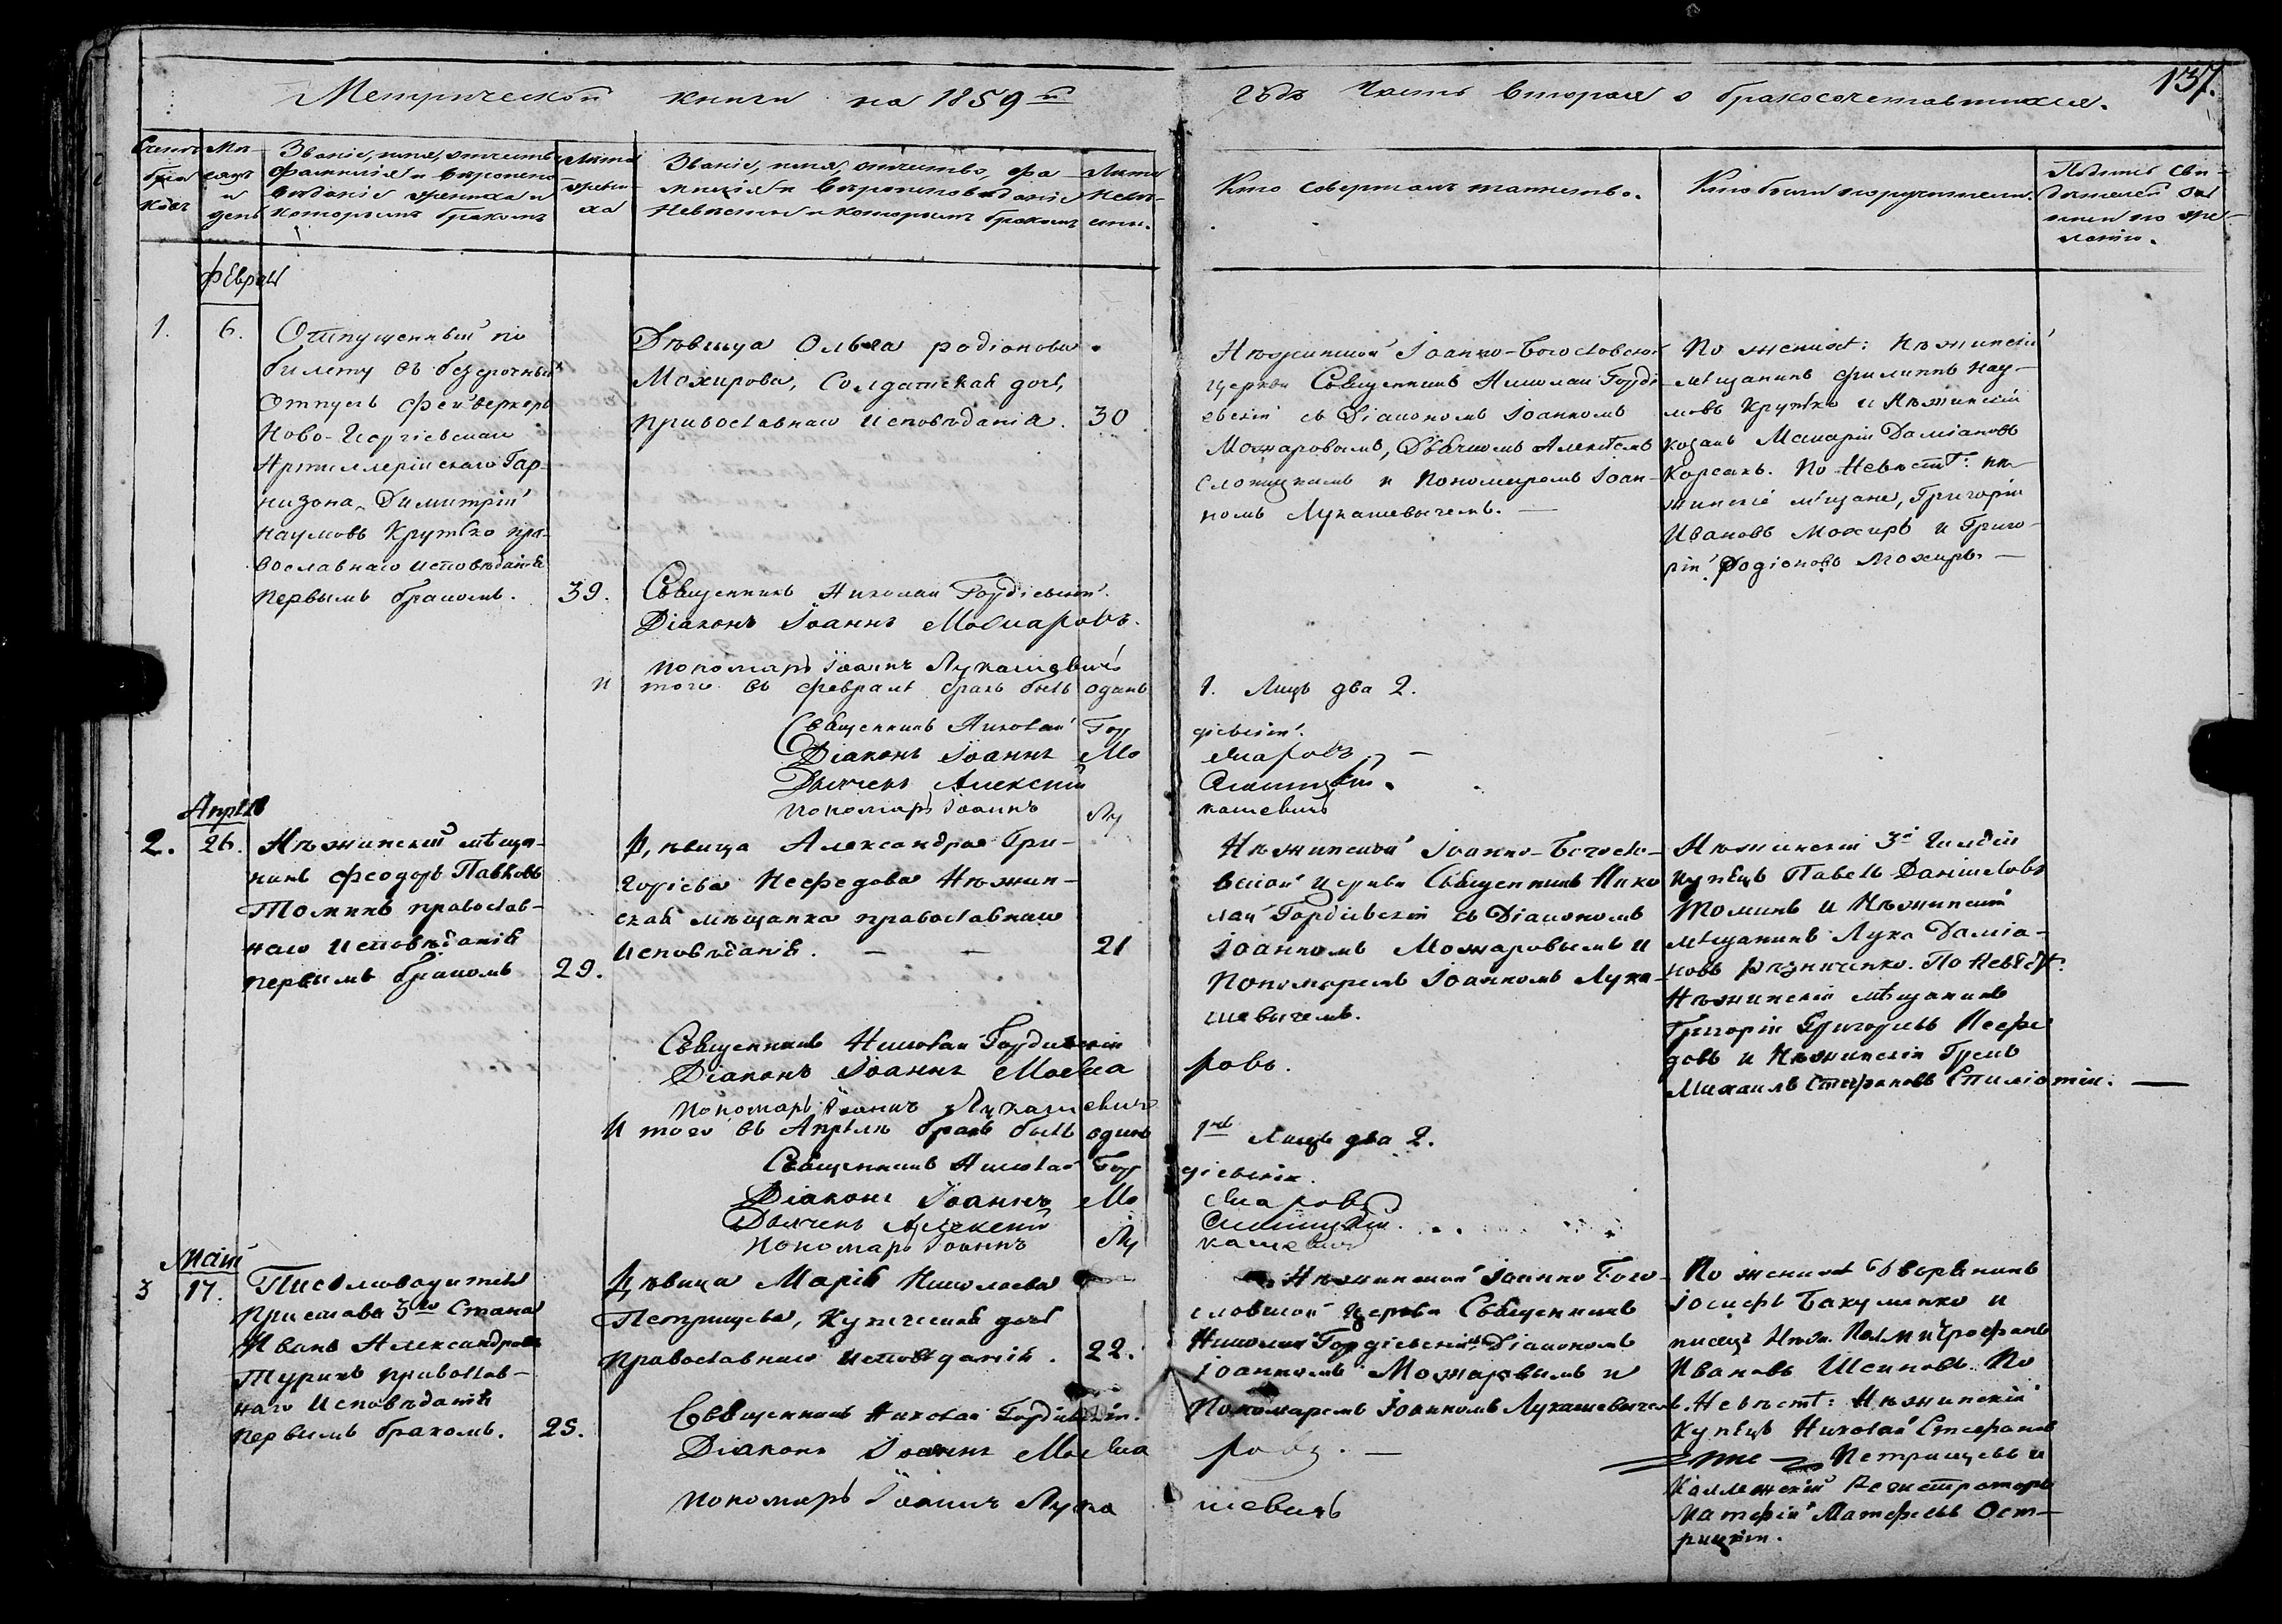 Метрической книги на 1859й
годъ Часть вторая о бракосочетавшихся.
137.
Счетъ браковъ
Мѣсяцъ и день
Званіе, имя, отчество,
фамилія и вѣроиспо-
вѣданіе жениха и
которымъ бракомъ
Лѣта
жени-
ха
Званіе, имя, отчество, фа-
милія и вѣроисповѣданіе
невѣсты и которымъ бракомъ
Лѣта
невѣ-
сты.
Кто совершалъ таинство.
Кто были поручители.
Подпись сви-
дѣтелей за-
писи по же-
ланію.
Февраль
1.
6.
Отпущенный по
билету въ безсрочный
Отпускъ фейверкеръ
Ново-Георгіевскаго
Артиллерійскаго Гар-
низона, Димитрій
Наумовъ Крутько пра-
вославнаго исповѣданія
первымъ бракомъ.
39.
Дѣвица Ольга родіонова
Мохирова, Солдатская дочь,
православнаго исповѣданія.
30
Нѣжинской Іоанно-Богословской
церкви Священникъ Николай Горді-
евскій съ Діакономъ Іоанномъ
Можаровымъ, Дьячкомъ Алексѣемъ
Слотицкимъ и Пономаремъ Іоан-
номъ Лукашевичемъ. —
По женихѣ: Нѣжинскій
мѣщанинъ Филиппъ Нау-
мовъ Крутько и Нѣжинскій
козакъ Макарій Даміановъ
Корсакъ. По Невѣстѣ: нѣ-
жинскіе мѣщане, Григорій
Ивановъ Мохиръ и Григо-
рій Родіоновъ Мохиръ. —
Священникъ Николай Гордіевскій.
Діаконъ Іоаннъ Можаровъ.
Пономарь Іоаннъ Лукашевичъ
Итого въ февралѣ бракъ былъ одинъ 1. Лицъ два 2.
Священникъ Николай Гордіевскій.
Діаконъ Іоаннъ Можаровъ —
Дьячекъ Алексій Слотицкій.
Пономарь Іоаннъ Лукашевичъ
Апрѣль
2.
26.
Нѣжинскій мѣща-
нинъ Феодоръ Павловъ
Томинъ православ-
наго исповѣданія
первымъ бракомъ
29.
Дѣвица Александра Гри-
горіева Нефедова Нѣжин-
ская мѣщанка православнаго
исповѣданія. — —
21
Нѣжинской Іоанно-Богосло-
вской церкви Священникъ Нико
лай Гордіевскій съ Діакономъ
Іоанномъ Можаровымъ и
Пономаремъ Іоанномъ Лука-
шевичемъ.
Нѣжинскій 3й Гильдіи
купецъ Павелъ Даніиловъ
Томинъ и Нѣжинскій
мѣщанинъ Лука Даміа-
новъ Рѣзниченко. По Невѣстѣ:
Нѣжинскій мѣщанинъ
Григорій Григорьевъ Нефе
довъ и Нѣжинскій Грекъ
Михаилъ Стефановъ Спиліотій. —
Священникъ Николай Гордіевскій
Діаконъ Іоаннъ Можаровъ.
Пономарь Іоаннъ Лукашевичъ
Итого въ Апрѣлѣ бракъ былъ одинъ 1нъ Лицъ два 2.
Священникъ Николай Гордіевскій.
Діаконъ Іоаннъ Можаровъ
Дьячекъ Алексій Слотицкій.
Пономарь Іоаннъ Лукашевичъ
Маій
3
17.
Письмоводитель
Пристава 3го Стана
Иванъ Александровъ
Туринъ православ-
наго Исповѣданія
первымъ бракомъ.
25.
Дѣвица Марія Николаева
Петрищева, Купеческая дочь
православнаго исповѣданія.
22.
Нѣжинской Іоанно Бого-
словской церкви Священникъ
Николай Гордіевскій съ Діакономъ
Іоанномъ Можаровымъ и
Пономаремъ Іоанномъ Лукашевичемъ.
По женихѣ Дворянинъ
Іосифъ Бакуменко и
писецъ Митрофанъ
Ивановъ По
Невѣстѣ: Нѣжинскій
Купецъ Николай Стефановъ
Петрищевъ и
Коллежскій Регистраторъ
Матфій Матфѣевъ Ост-
рицкій.
Священникъ Николай Гордіевскій.
Діаконъ Іоаннъ Можаровъ. —
Пономарь Іоаннъ Лукашевичъ